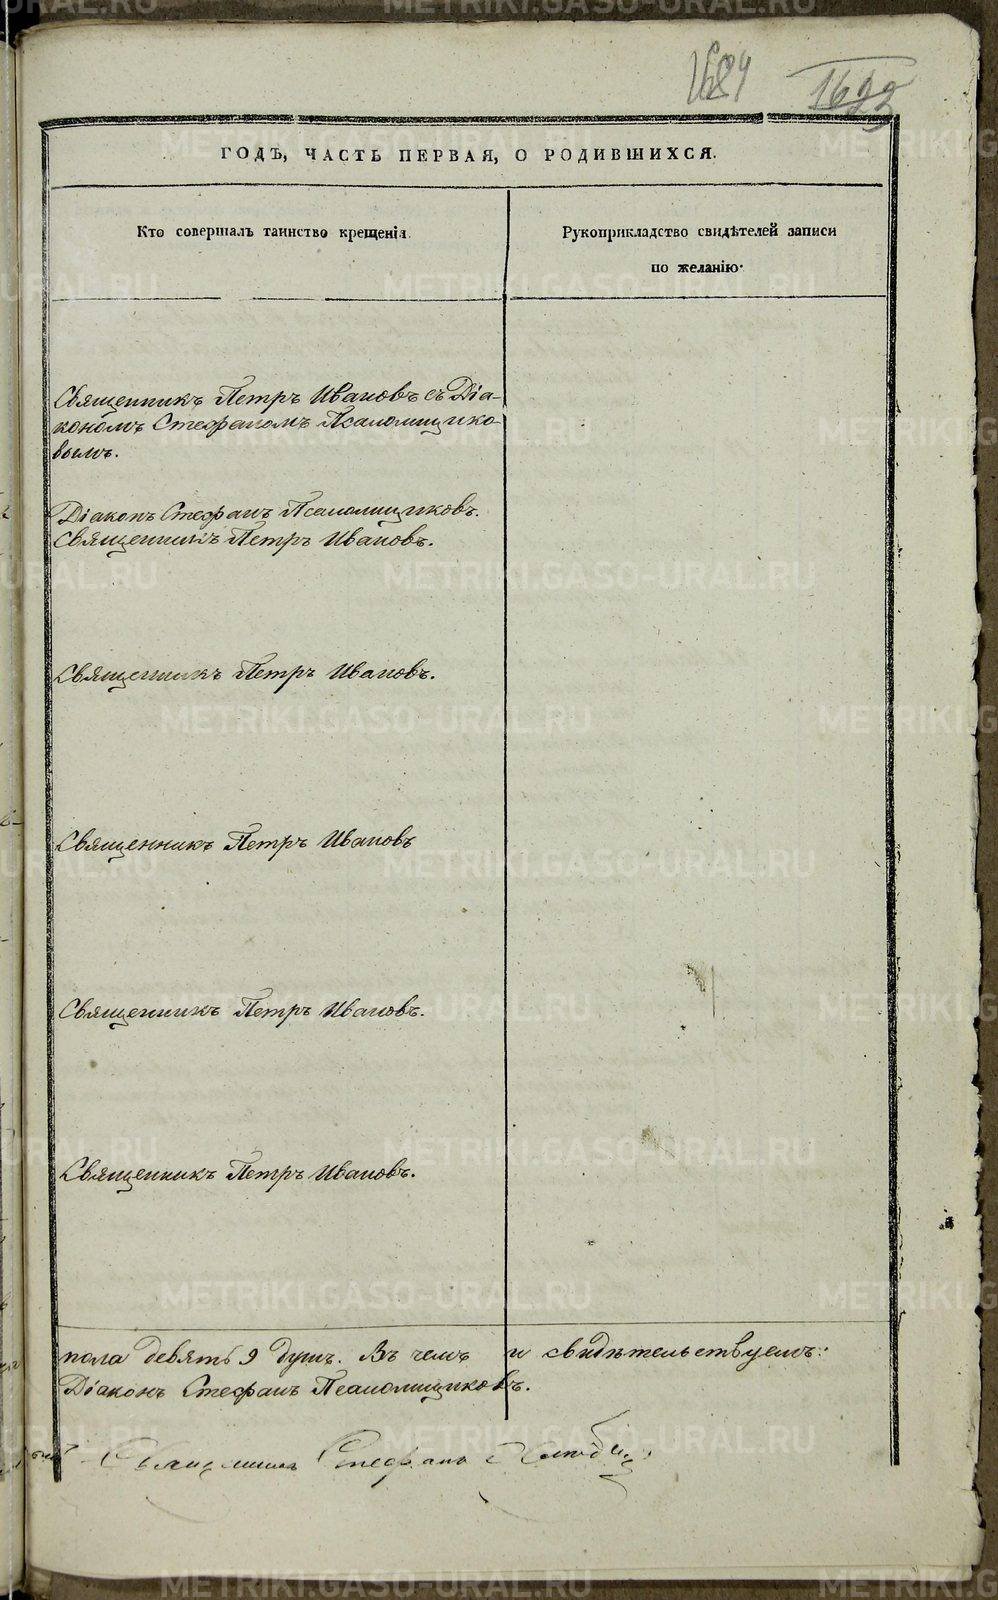 1684
1622
ГОДЪ, ЧАСТЬ ПЕРВАЯ, О РОДИВШИХСЯ.
Кто совершалъ таинство крещенія.
Рукоприкладство свидѣтелей записи
по желанію.
Священникъ Петръ Ивановъ съ Діа-
кономъ Стефаномъ Псаломщико-
вымъ.
Діаконъ Стефанъ Псаломщиковъ.
Священникъ Петръ Ивановъ.
Священникъ Петръ Ивановъ.
Священникъ Петръ Ивановъ
Священникъ Петръ Ивановъ.
Священникъ Петръ Ивановъ.
пола девять 9 душъ. Въ чемъ и свидѣтельствуемъ:
Діаконъ Стефанъ Псаломщиковъ.
Священникъ Стефанъ
METRIKI.GASO-URAL.RU